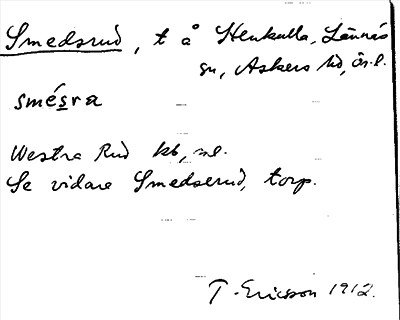 Smedsrud, t å Stenkulla, Lännäs
sn, Askers hd, ör. l.
smésra
Westra Rud kb, ml.
Se vidare Smedserud, torp.
T. Ericsson 1912.